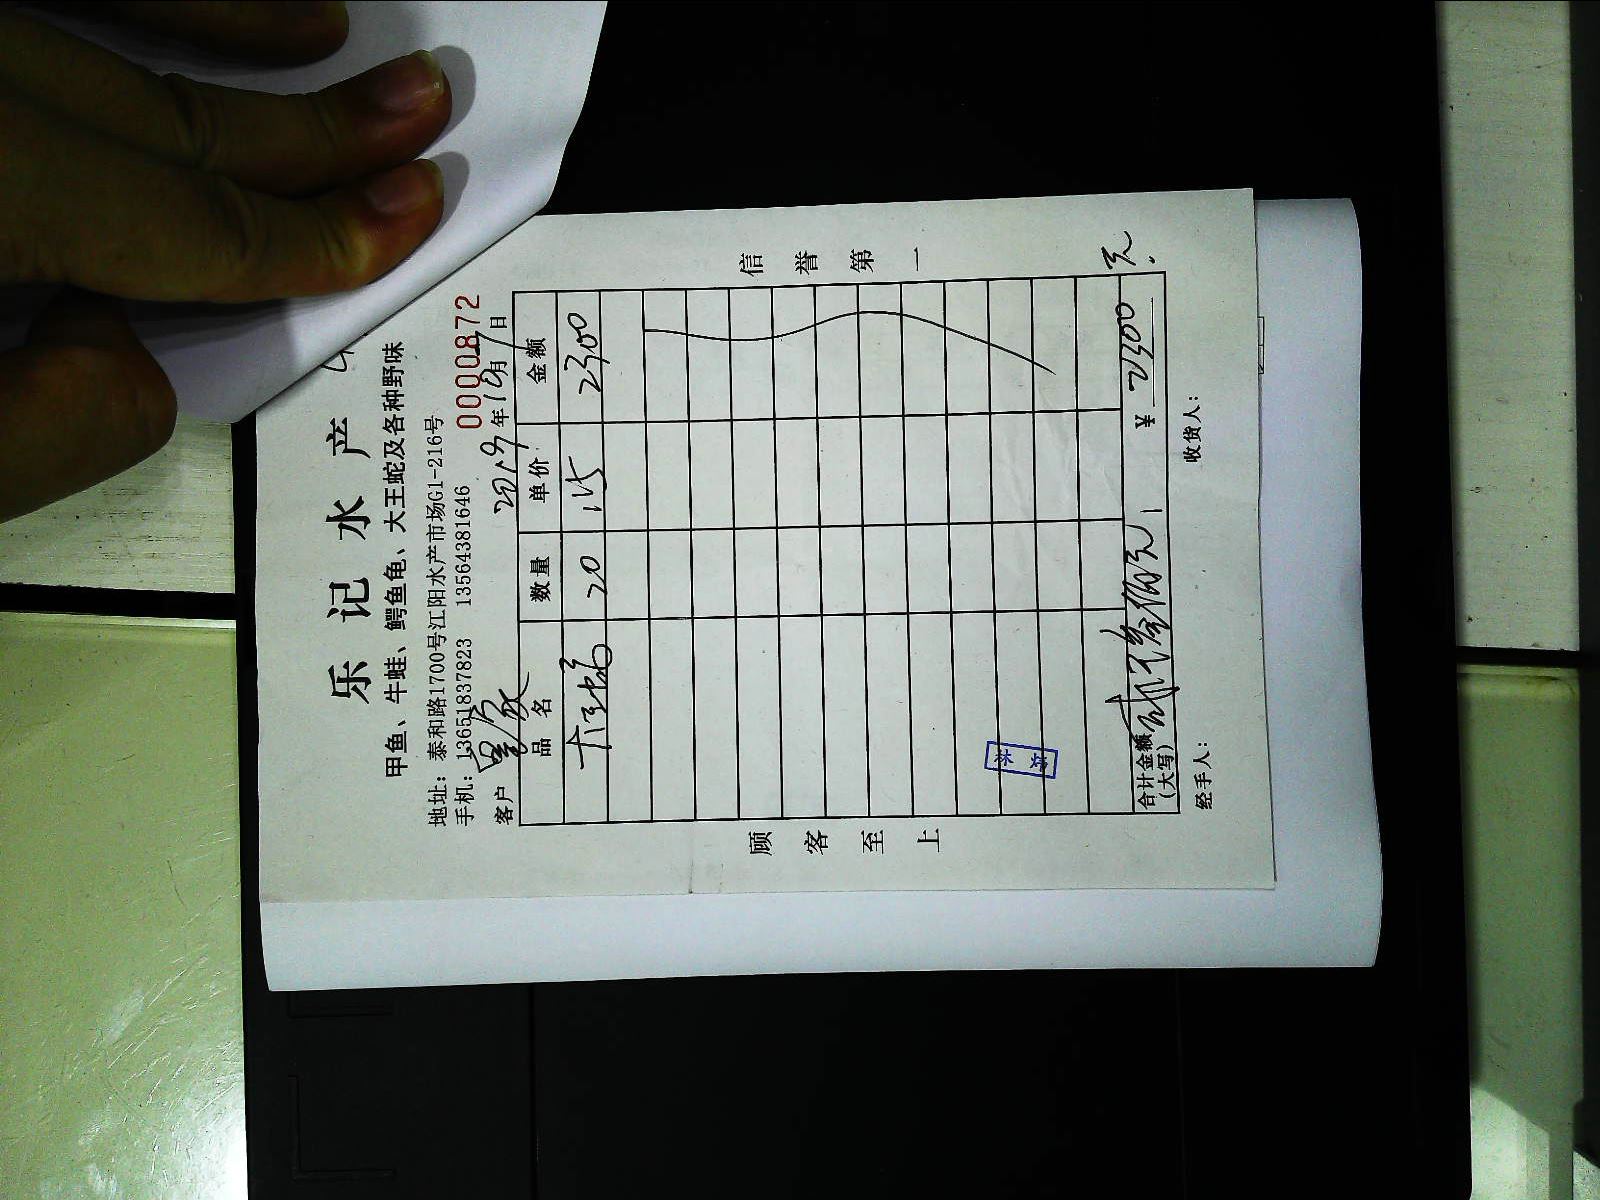 乐记水产
甲鱼、牛蛙、鳄鱼龟、大王蛇及各种野味
地址：泰和路1700号江阳水产市场G1-216号
手机：13651837823 13564381646
0000872
客户 2019年10月 日
品名 数量 单价 金额
20 115 2300
合计金额(大写) 贰仟叁佰元 ¥ 2300元
经手人： 收货人：
顾客至上
信誉第一